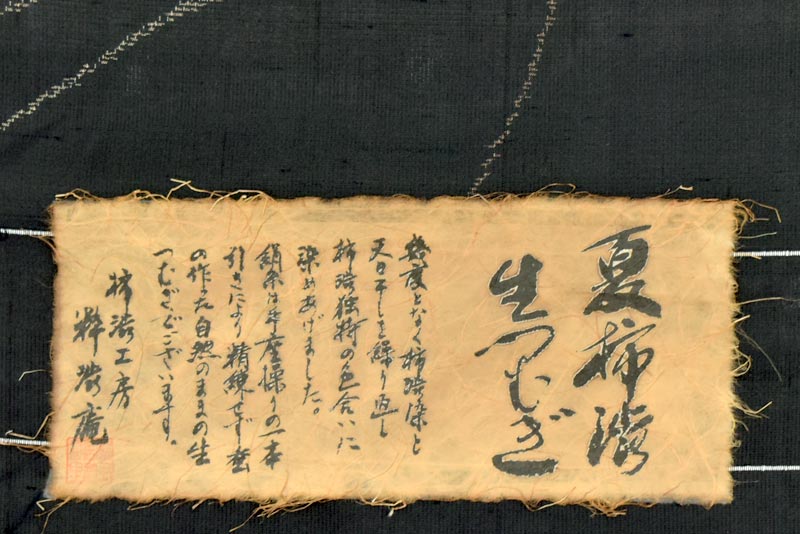 夏柿渋
生つむぎ
幾度となく柿渋染と
天日干しを繰り返し
柿渋独特の色合いに
染めあげました。
絹糸は生座操りの一本
引きにより精練せず
の作った自然のままの生
つむぎでございます。
柿渋工房
粋渋庵